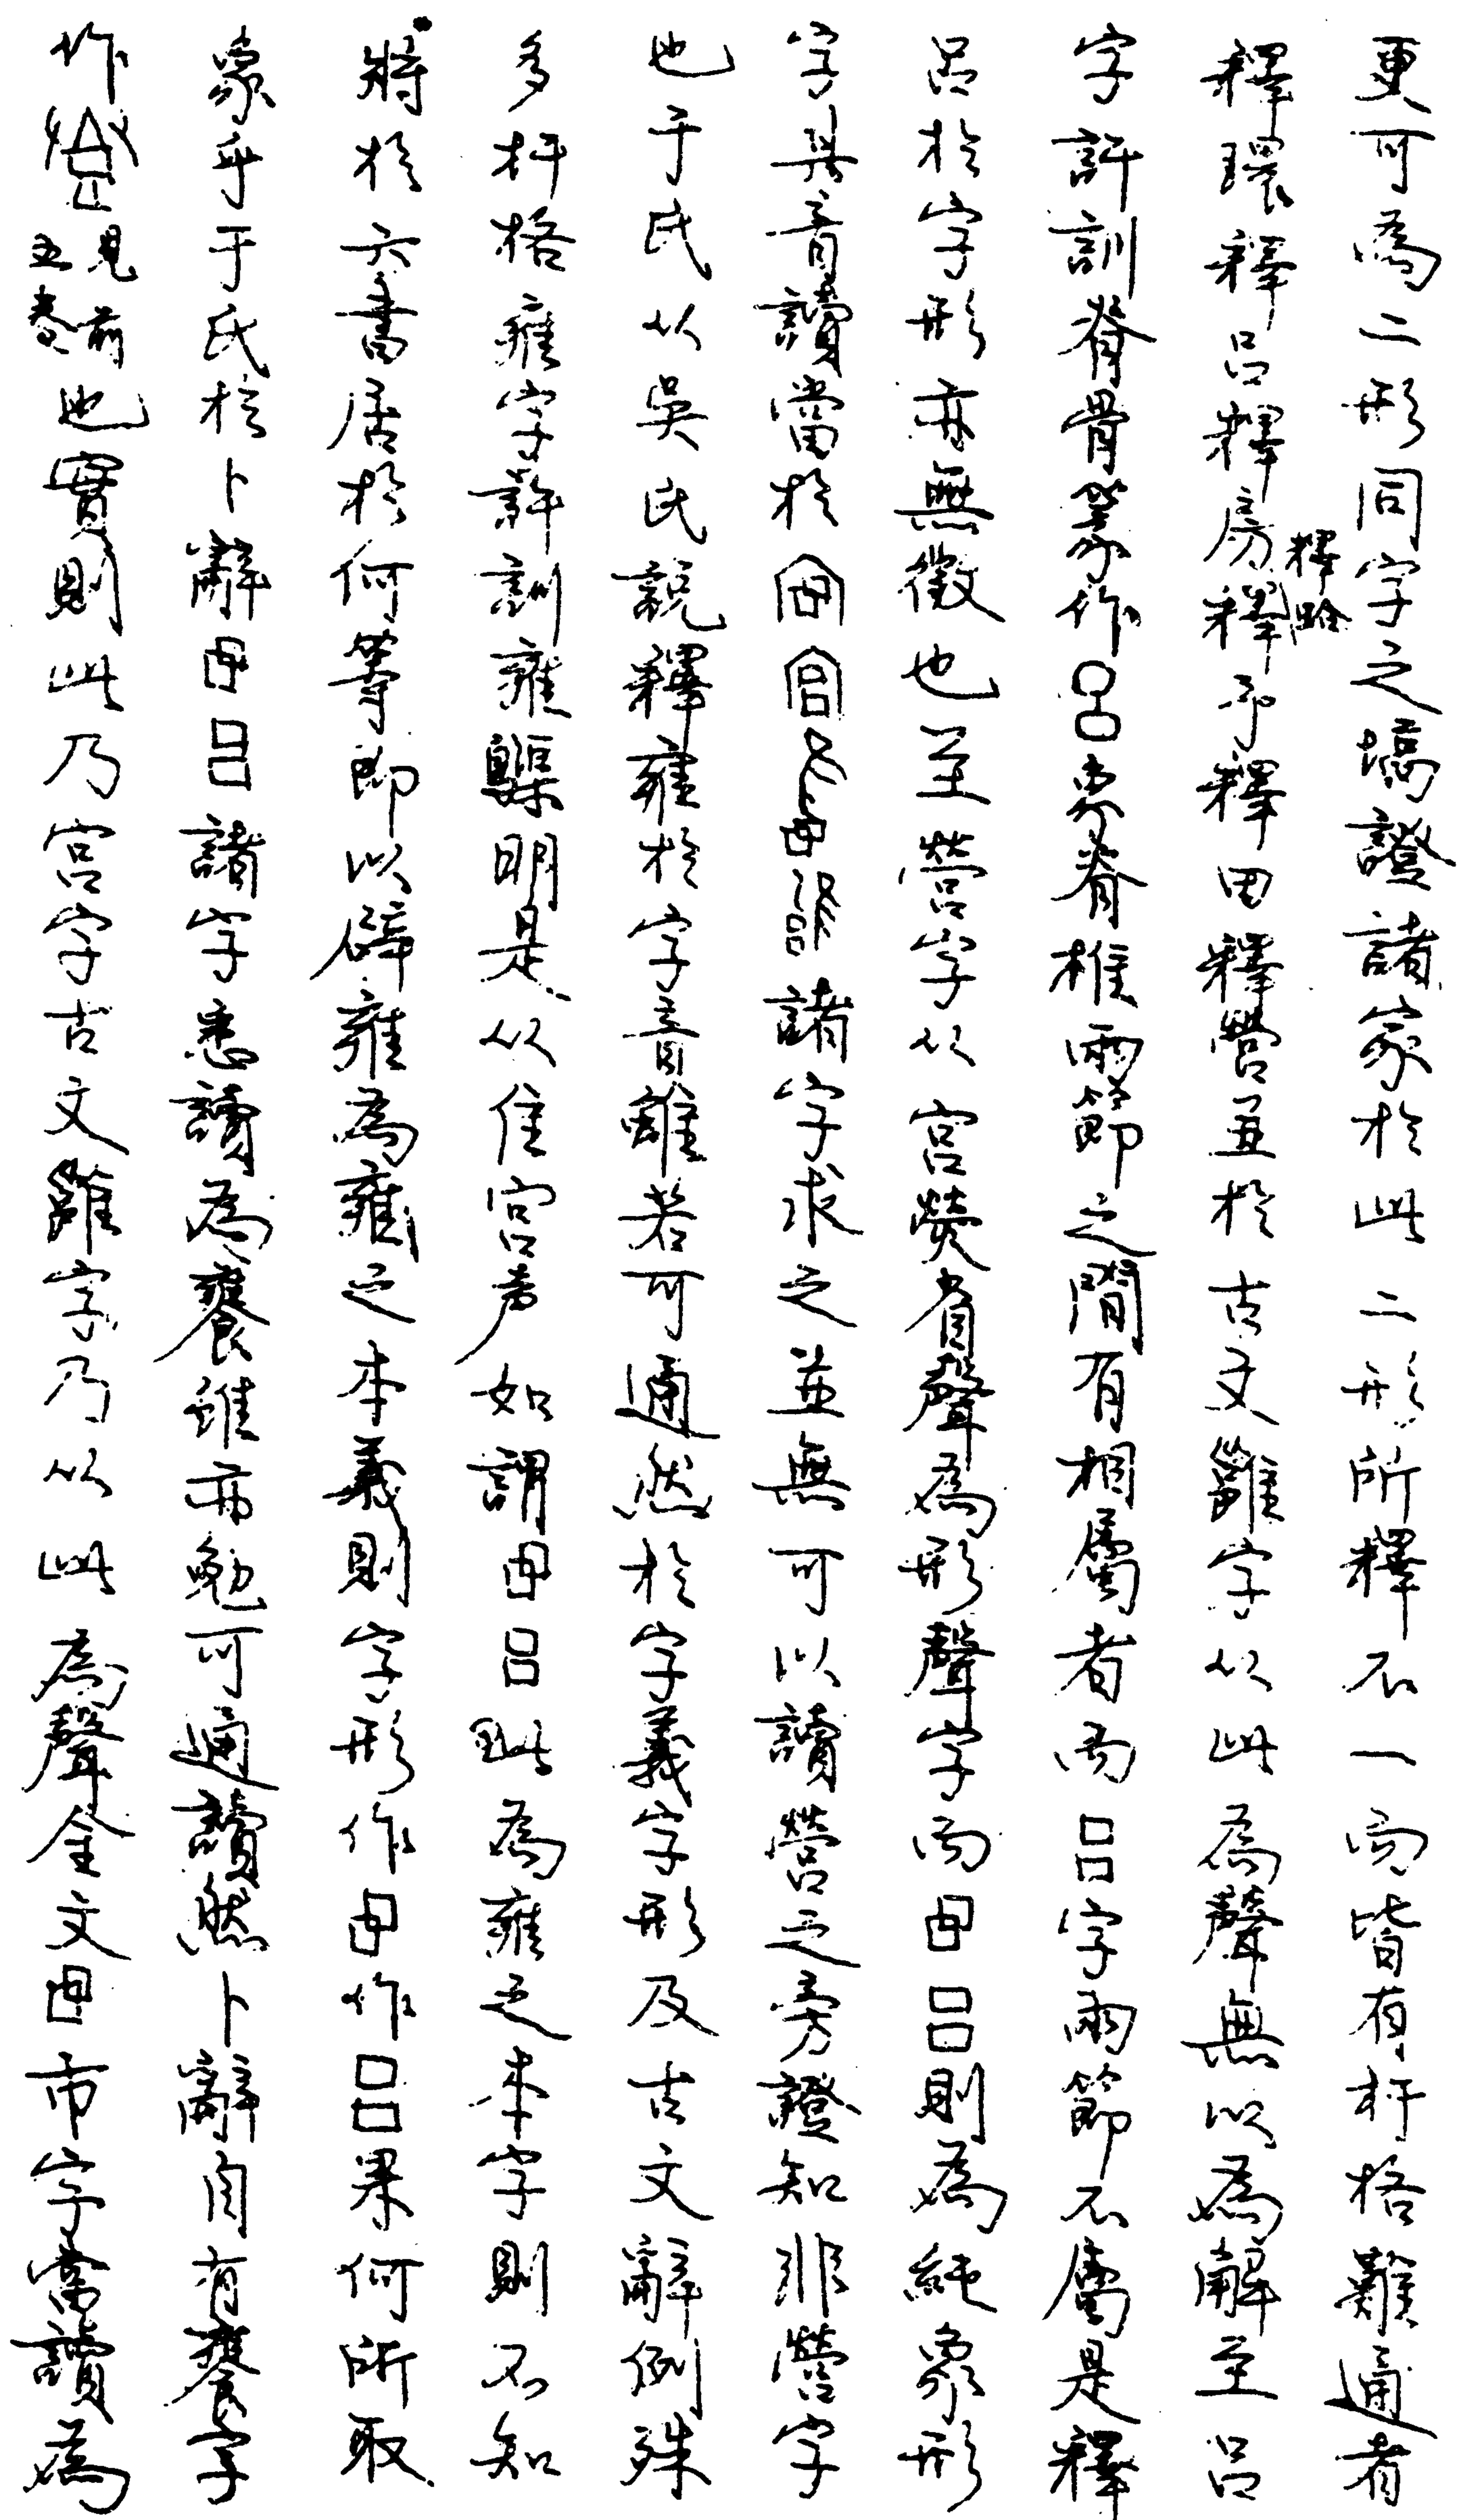 更可為二形同字之塙證諸家於此二形所釋不一而皆有杆格難通者
釋環釋呂釋房釋釋予釋田釋營並於古文雝字从此為聲無以為解至呂
字許訓脊骨篆作呂象脊椎兩節之間有相屬者而吕字兩節不屬是釋
呂於字形亦無徵也至營字从宮熒省聲為形聲字而吕則為純象形
字其音讀當於諸字求之並無可以讀營之旁證知非營字
也于氏从吳氏說釋雍於字音雖若可通然於字義字形及古文辭例殊
多杆格雍字許訓雍䴏明是从隹宮声如謂吕此為雍之本字則不知
將於六書居於何等即以辟雍為雍之本義則字形作作吕果何所取
象乎于氏於卜辭吕諸字悉讀為饔雖亦勉可通讀然卜辭自有饔字
作見前五卷也實則此乃宮字古文雝字乃以此為聲金文市字當讀為